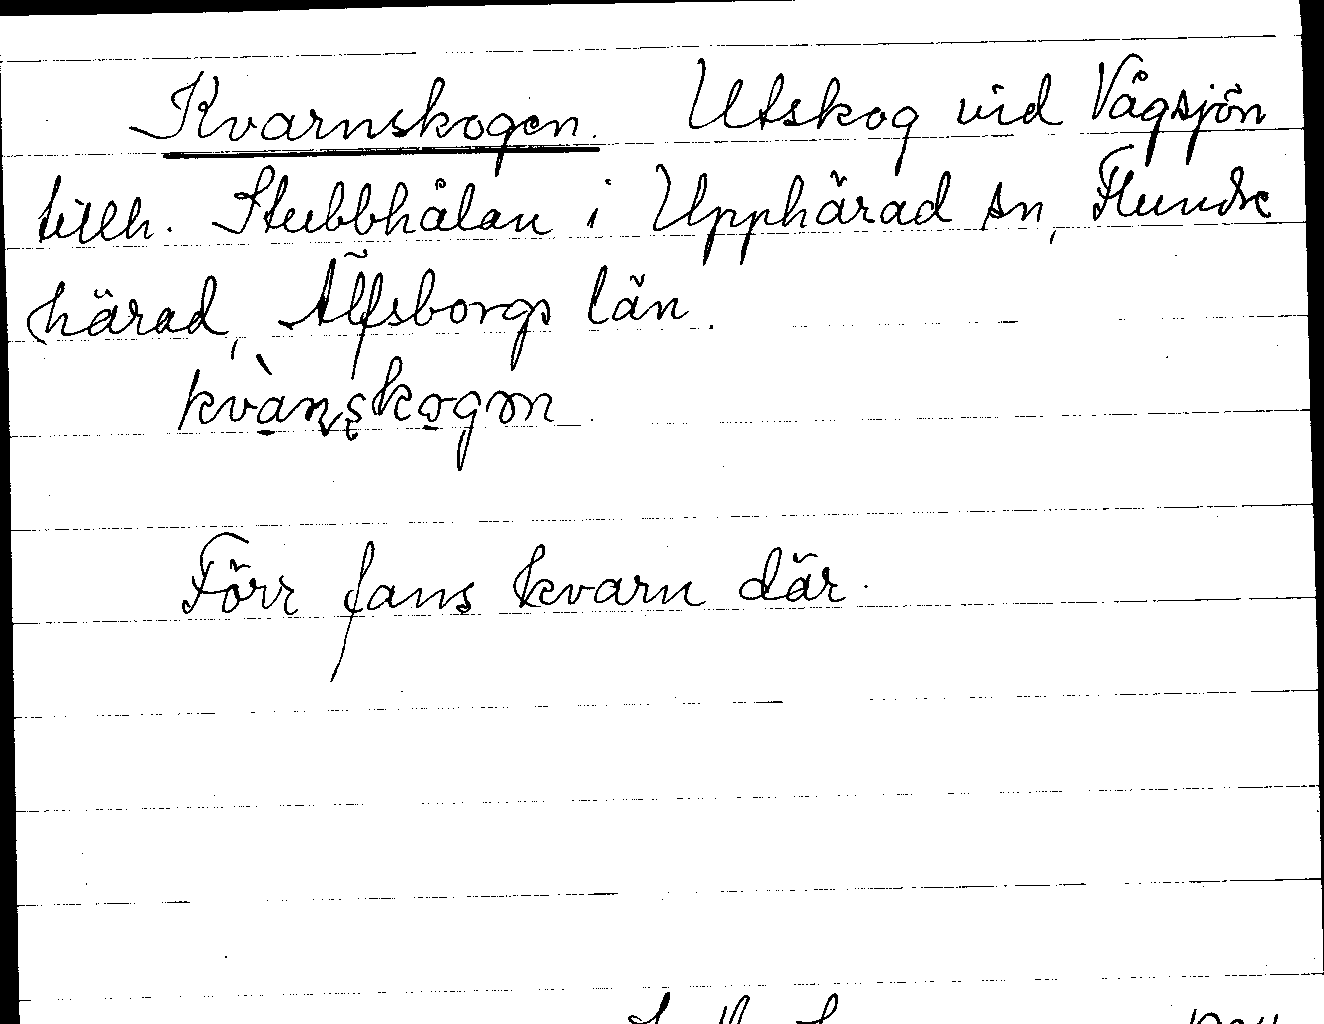 Kvarnskogen. Utskog vid Vågsjön
tillh. Stubbhålan i Upphärad sn, Flundre
härad, Älfsborgs län.
kvànskogən
Förr fans kvarn där.